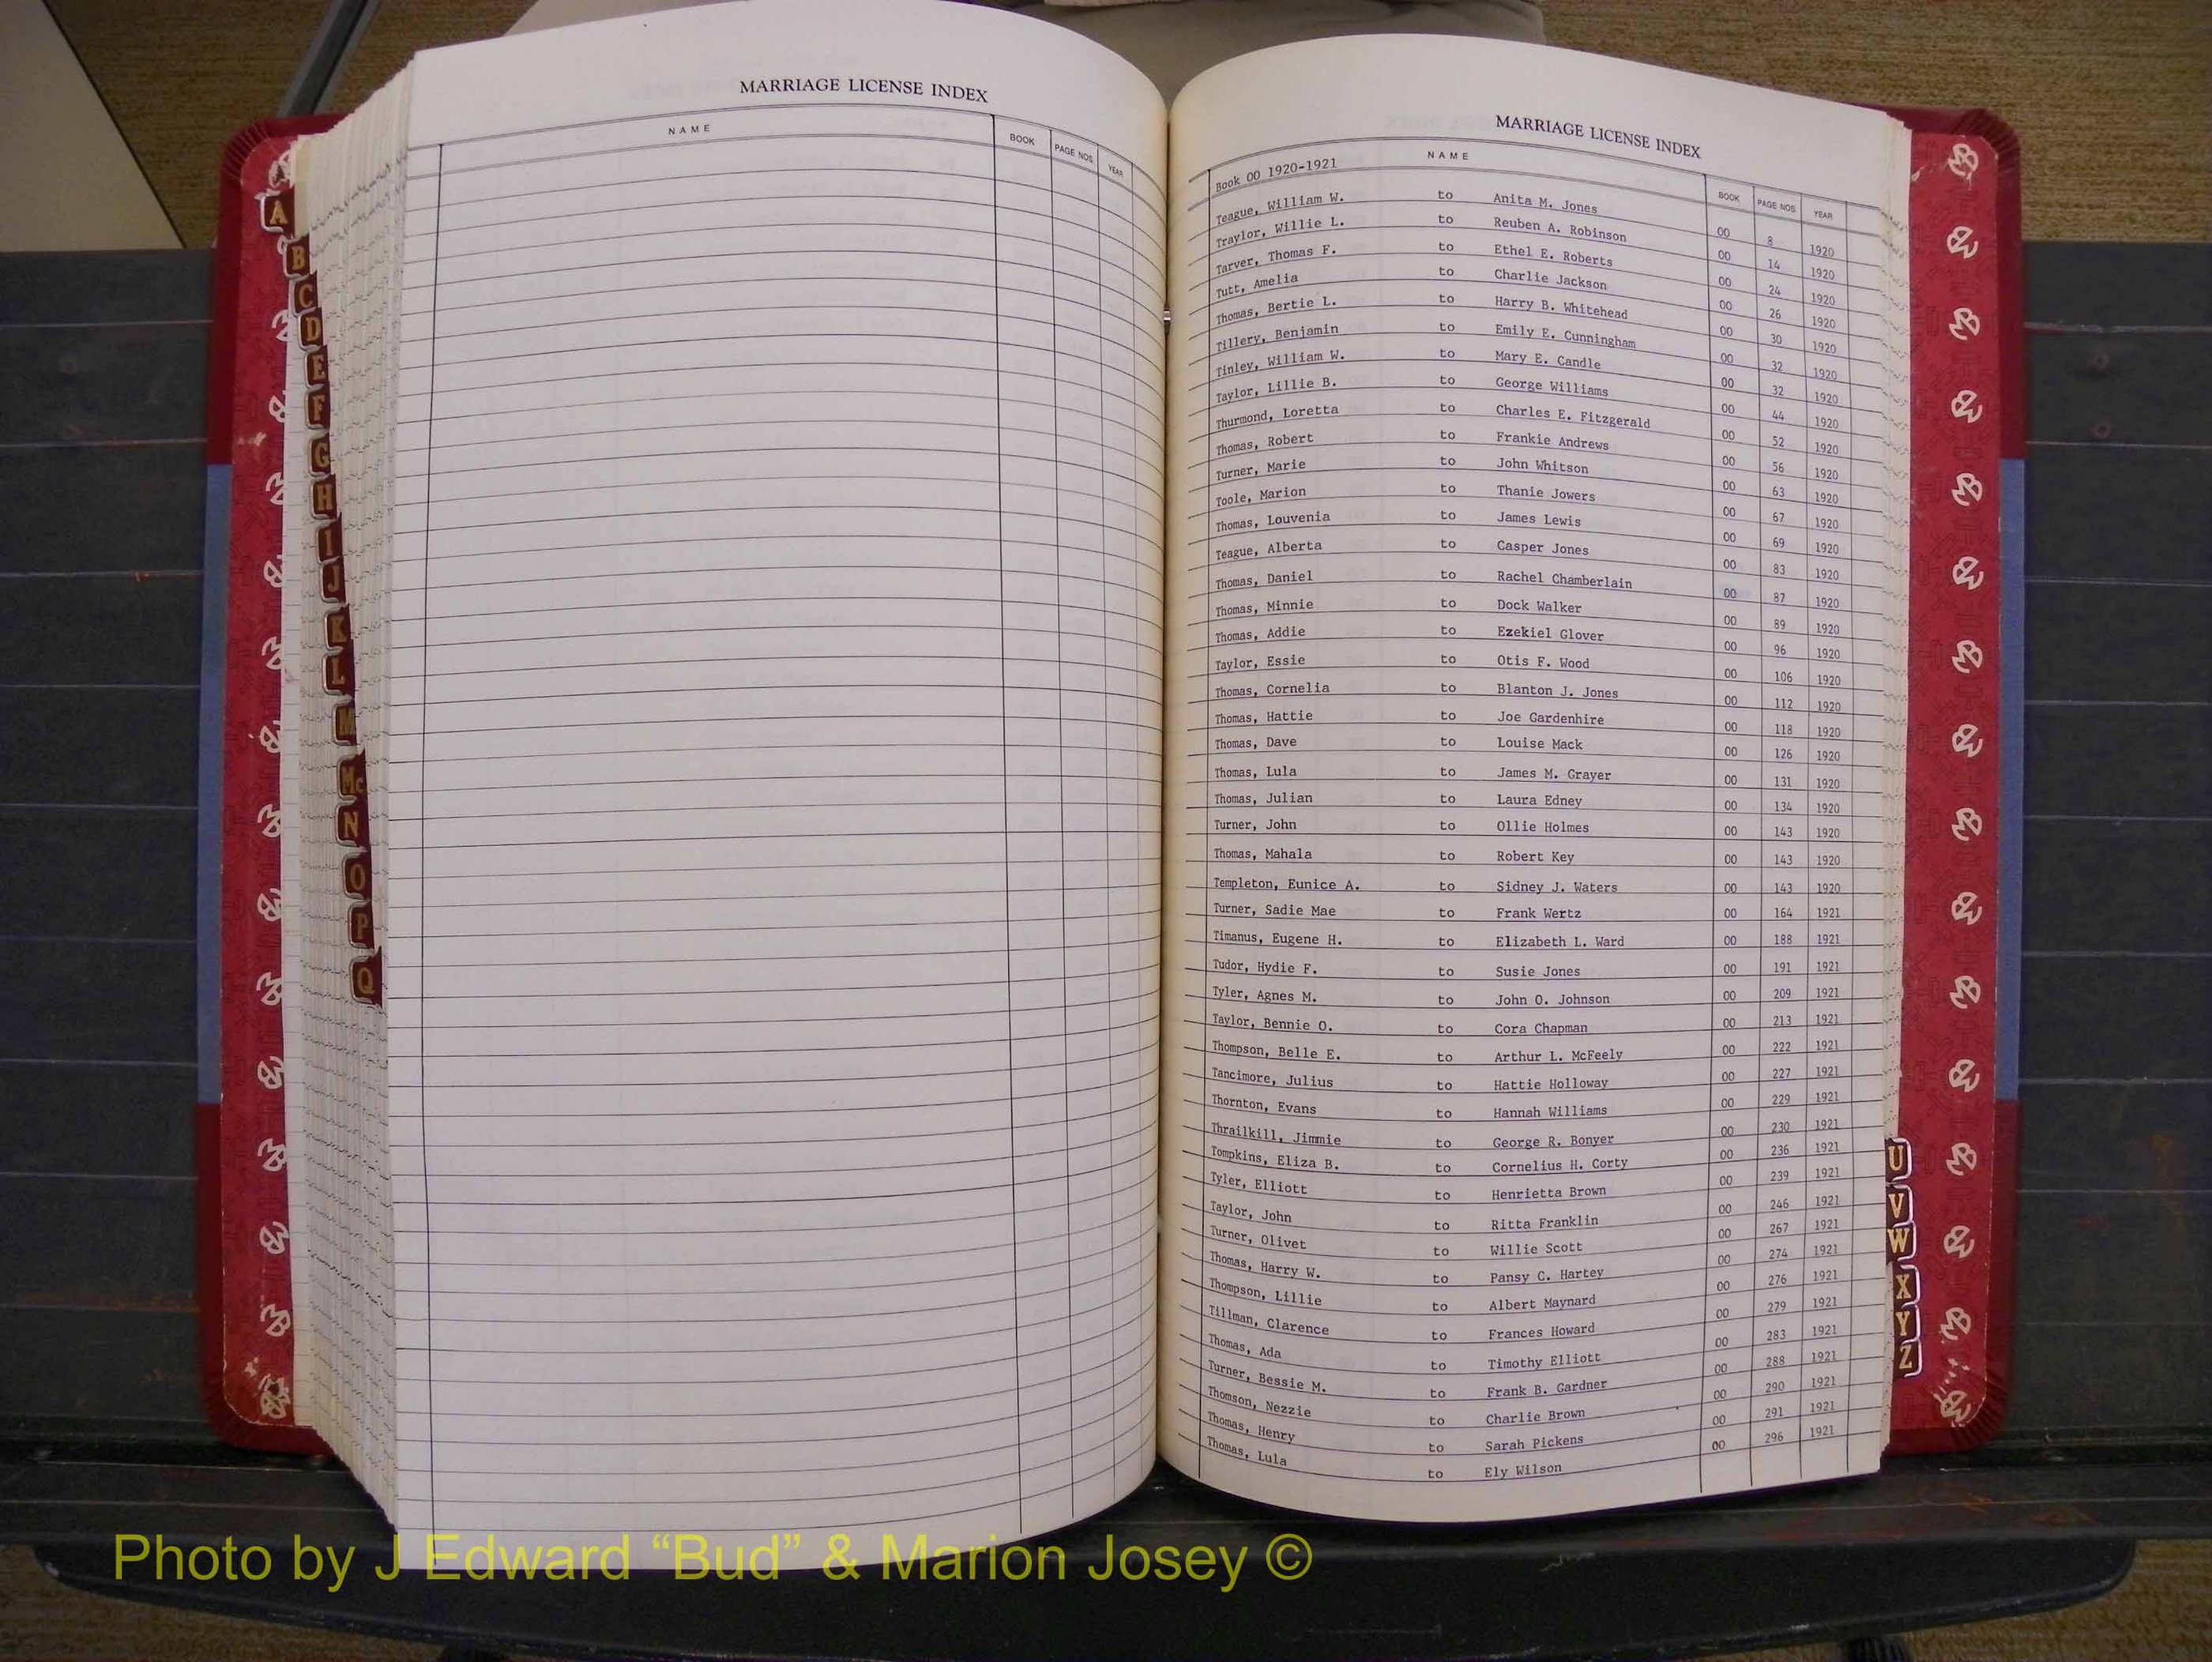 MARRIAGE LICENSE INDEX
NAME BOOK PAGE NOS. YEAR
A
B
C
D
E
F
G
H
I
J
K
L
M
Mc
N
O
P
Q
MARRIAGE LICENSE INDEX
NAME BOOK PAGE NOS. YEAR
Book 00 1920-1921
Teague, William W. to Anita M. Jones 00 8 1920
Traylor, Willie L. to Reuben A. Robinson 00 14 1920
Tarver, Thomas F. to Ethel E. Roberts 00 24 1920
Tutt, Amelia to Charlie Jackson 00 26 1920
Thomas, Bertie L. to Harry B. Whitehead 00 30 1920
Tillery, Benjamin to Emily E. Cunningham 00 32 1920
Tinley, William W. to Mary E. Candle 00 32 1920
Taylor, Lillie B. to George Williams 00 44 1920
Thurmond, Loretta to Charles E. Fitzgerald 00 52 1920
Thomas, Robert to Frankie Andrews 00 56 1920
Turner, Marie to John Whitson 00 63 1920
Toole, Marion to Thanie Jowers 00 67 1920
Thomas, Louvenia to James Lewis 00 69 1920
Teague, Alberta to Casper Jones 00 83 1920
Thomas, Daniel to Rachel Chamberlain 00 87 1920
Thomas, Minnie to Dock Walker 00 89 1920
Thomas, Addie to Ezekiel Glover 00 96 1920
Taylor, Essie to Otis F. Wood 00 106 1920
Thomas, Cornelia to Blanton J. Jones 00 112 1920
Thomas, Hattie to Joe Gardenhire 00 118 1920
Thomas, Dave to Louise Mack 00 126 1920
Thomas, Lula to James M. Grayer 00 131 1920
Thomas, Julian to Laura Edney 00 134 1920
Turner, John to Ollie Holmes 00 143 1920
Thomas, Mahala to Robert Key 00 143 1920
Templeton, Eunice A. to Sidney J. Waters 00 143 1920
Turner, Sadie Mae to Frank Wertz 00 164 1921
Timanus, Eugene H. to Elizabeth L. Ward 00 188 1921
Tudor, Hydie F. to Susie Jones 00 191 1921
Tyler, Agnes M. to John O. Johnson 00 209 1921
Taylor, Bennie O. to Cora Chapman 00 213 1921
Thompson, Belle E. to Arthur L. McFeely 00 222 1921
Tancimore, Julius to Hattie Holloway 00 227 1921
Thornton, Evans to Hannah Williams 00 229 1921
Thrailkill, Jimmie to George R. Bonyer 00 230 1921
Tompkins, Eliza B. to Cornelius H. Corty 00 236 1921
Tyler, Elliott to Henrietta Brown 00 239 1921
Taylor, John to Ritta Franklin 00 246 1921
Turner, Olivet to Willie Scott 00 267 1921
Thomas, Harry W. to Pansy C. Hartey 00 274 1921
Thompson, Lillie to Albert Maynard 00 276 1921
Tillman, Clarence to Frances Howard 00 279 1921
Thomas, Ada to Timothy Elliott 00 283 1921
Turner, Bessie M. to Frank B. Gardner 00 288 1921
Thomson, Nezzie to Charlie Brown 00 290 1921
Thomas, Henry to Sarah Pickens 00 291 1921
Thomas, Lula to Ely Wilson 00 296 1921
U
V
W
X
Y
Z
Photo by J Edward “Bud” & Marion Josey ©